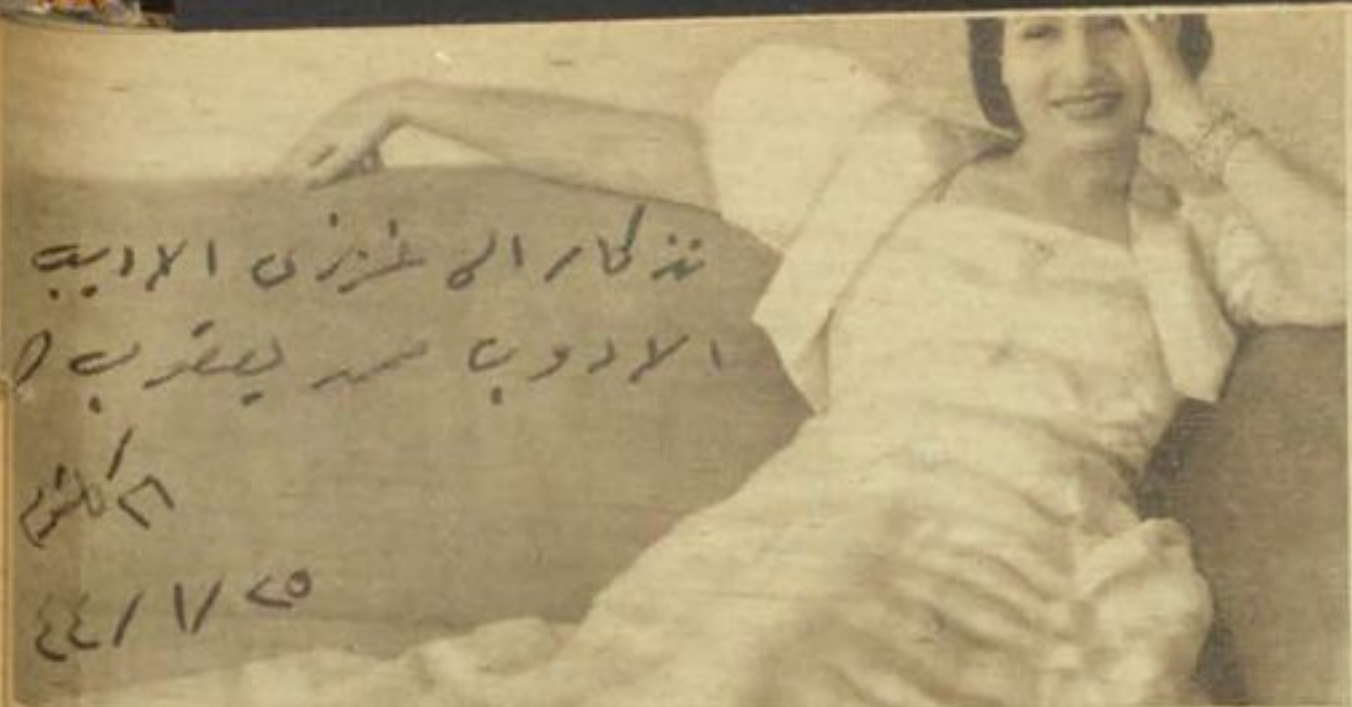 تذكار الى عزيزى الاديب
الاروب محمد يعقوب
ام كلثوم
٢٥/١/٤٤